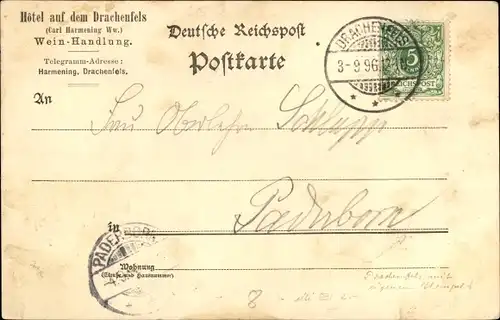 Hôtel auf dem Drachenfels
(Carl Harmening Ww.)
Wein-Handlung.
Telegramm-Adresse:
Harmening, Drachenfels.
Deutsche Reichspost
Postkarte
DRACHENFELS
3-9 96
5
REICHSPOST
An
Schlupp
Paderborn
in
PADERBORN
Wohnung
(Straße und Hausnummer)
Drachenfels mit
eigenem Stempel